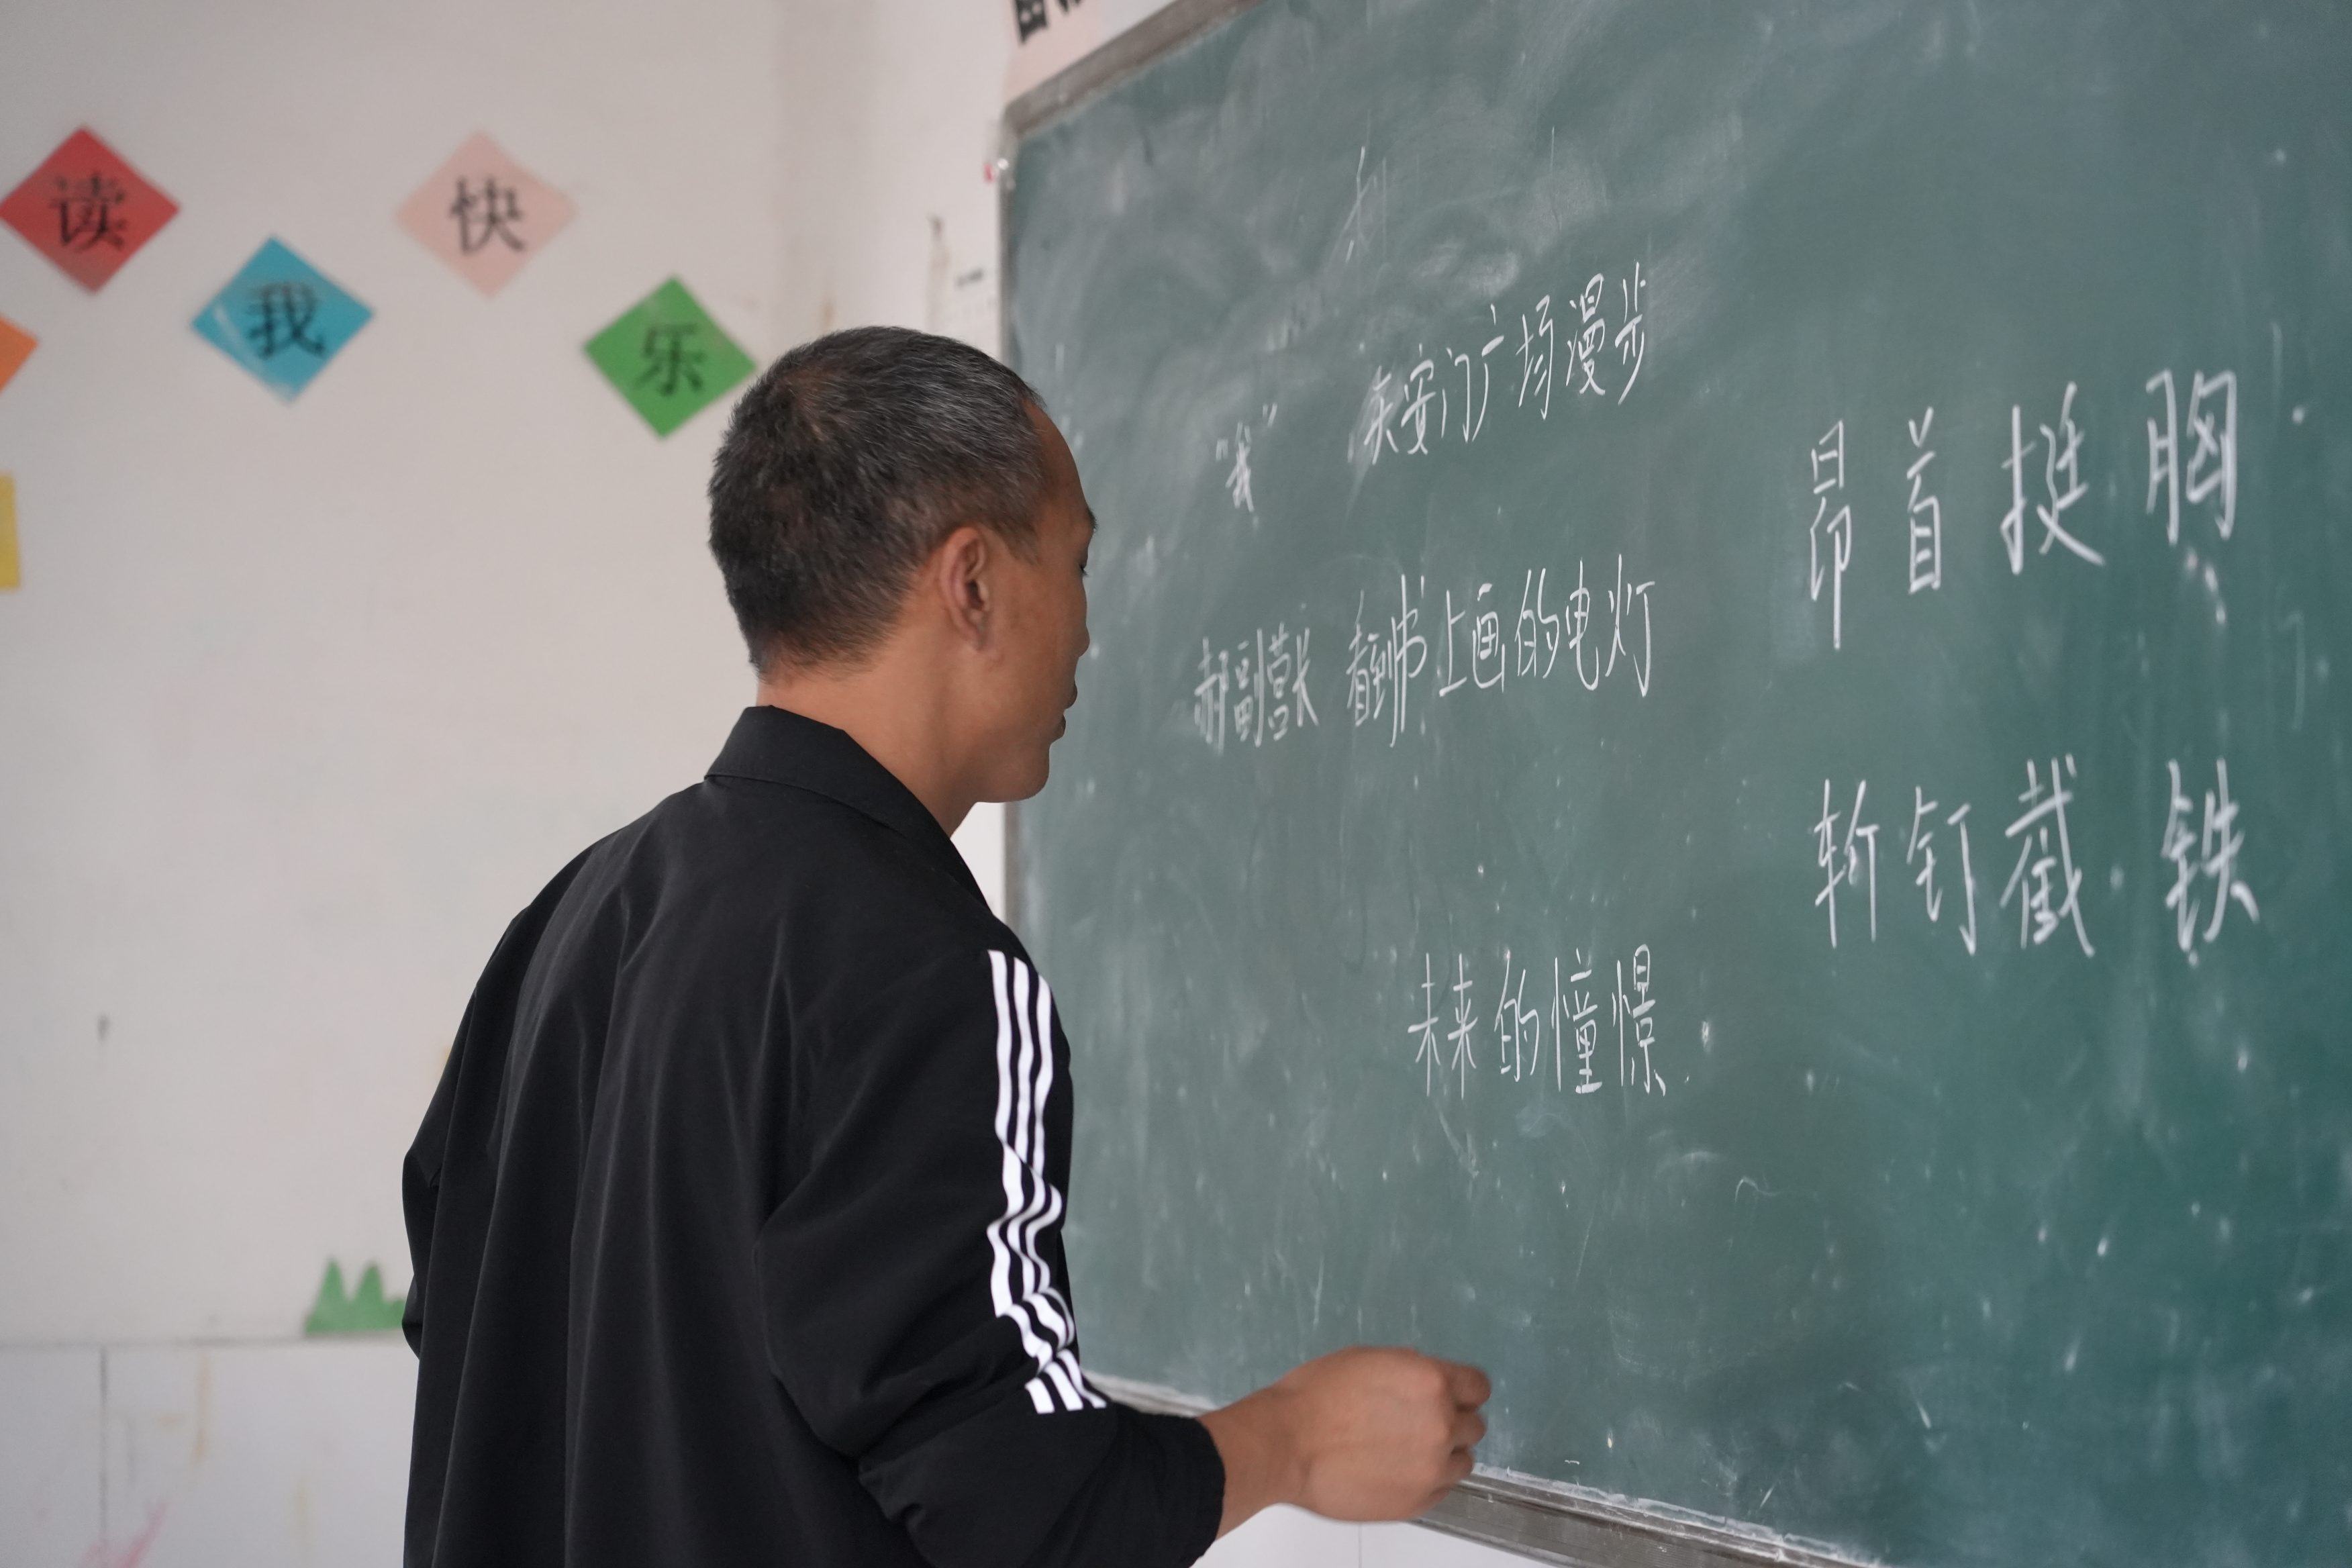 读我快乐
"我" 天安门广场漫步
郝副营长 看到书上画的电灯
未来的憧憬.
昂首挺胸
斩钉截铁